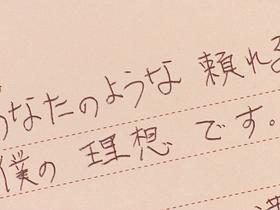 あなたのような 頼れる
僕の 理想 です。